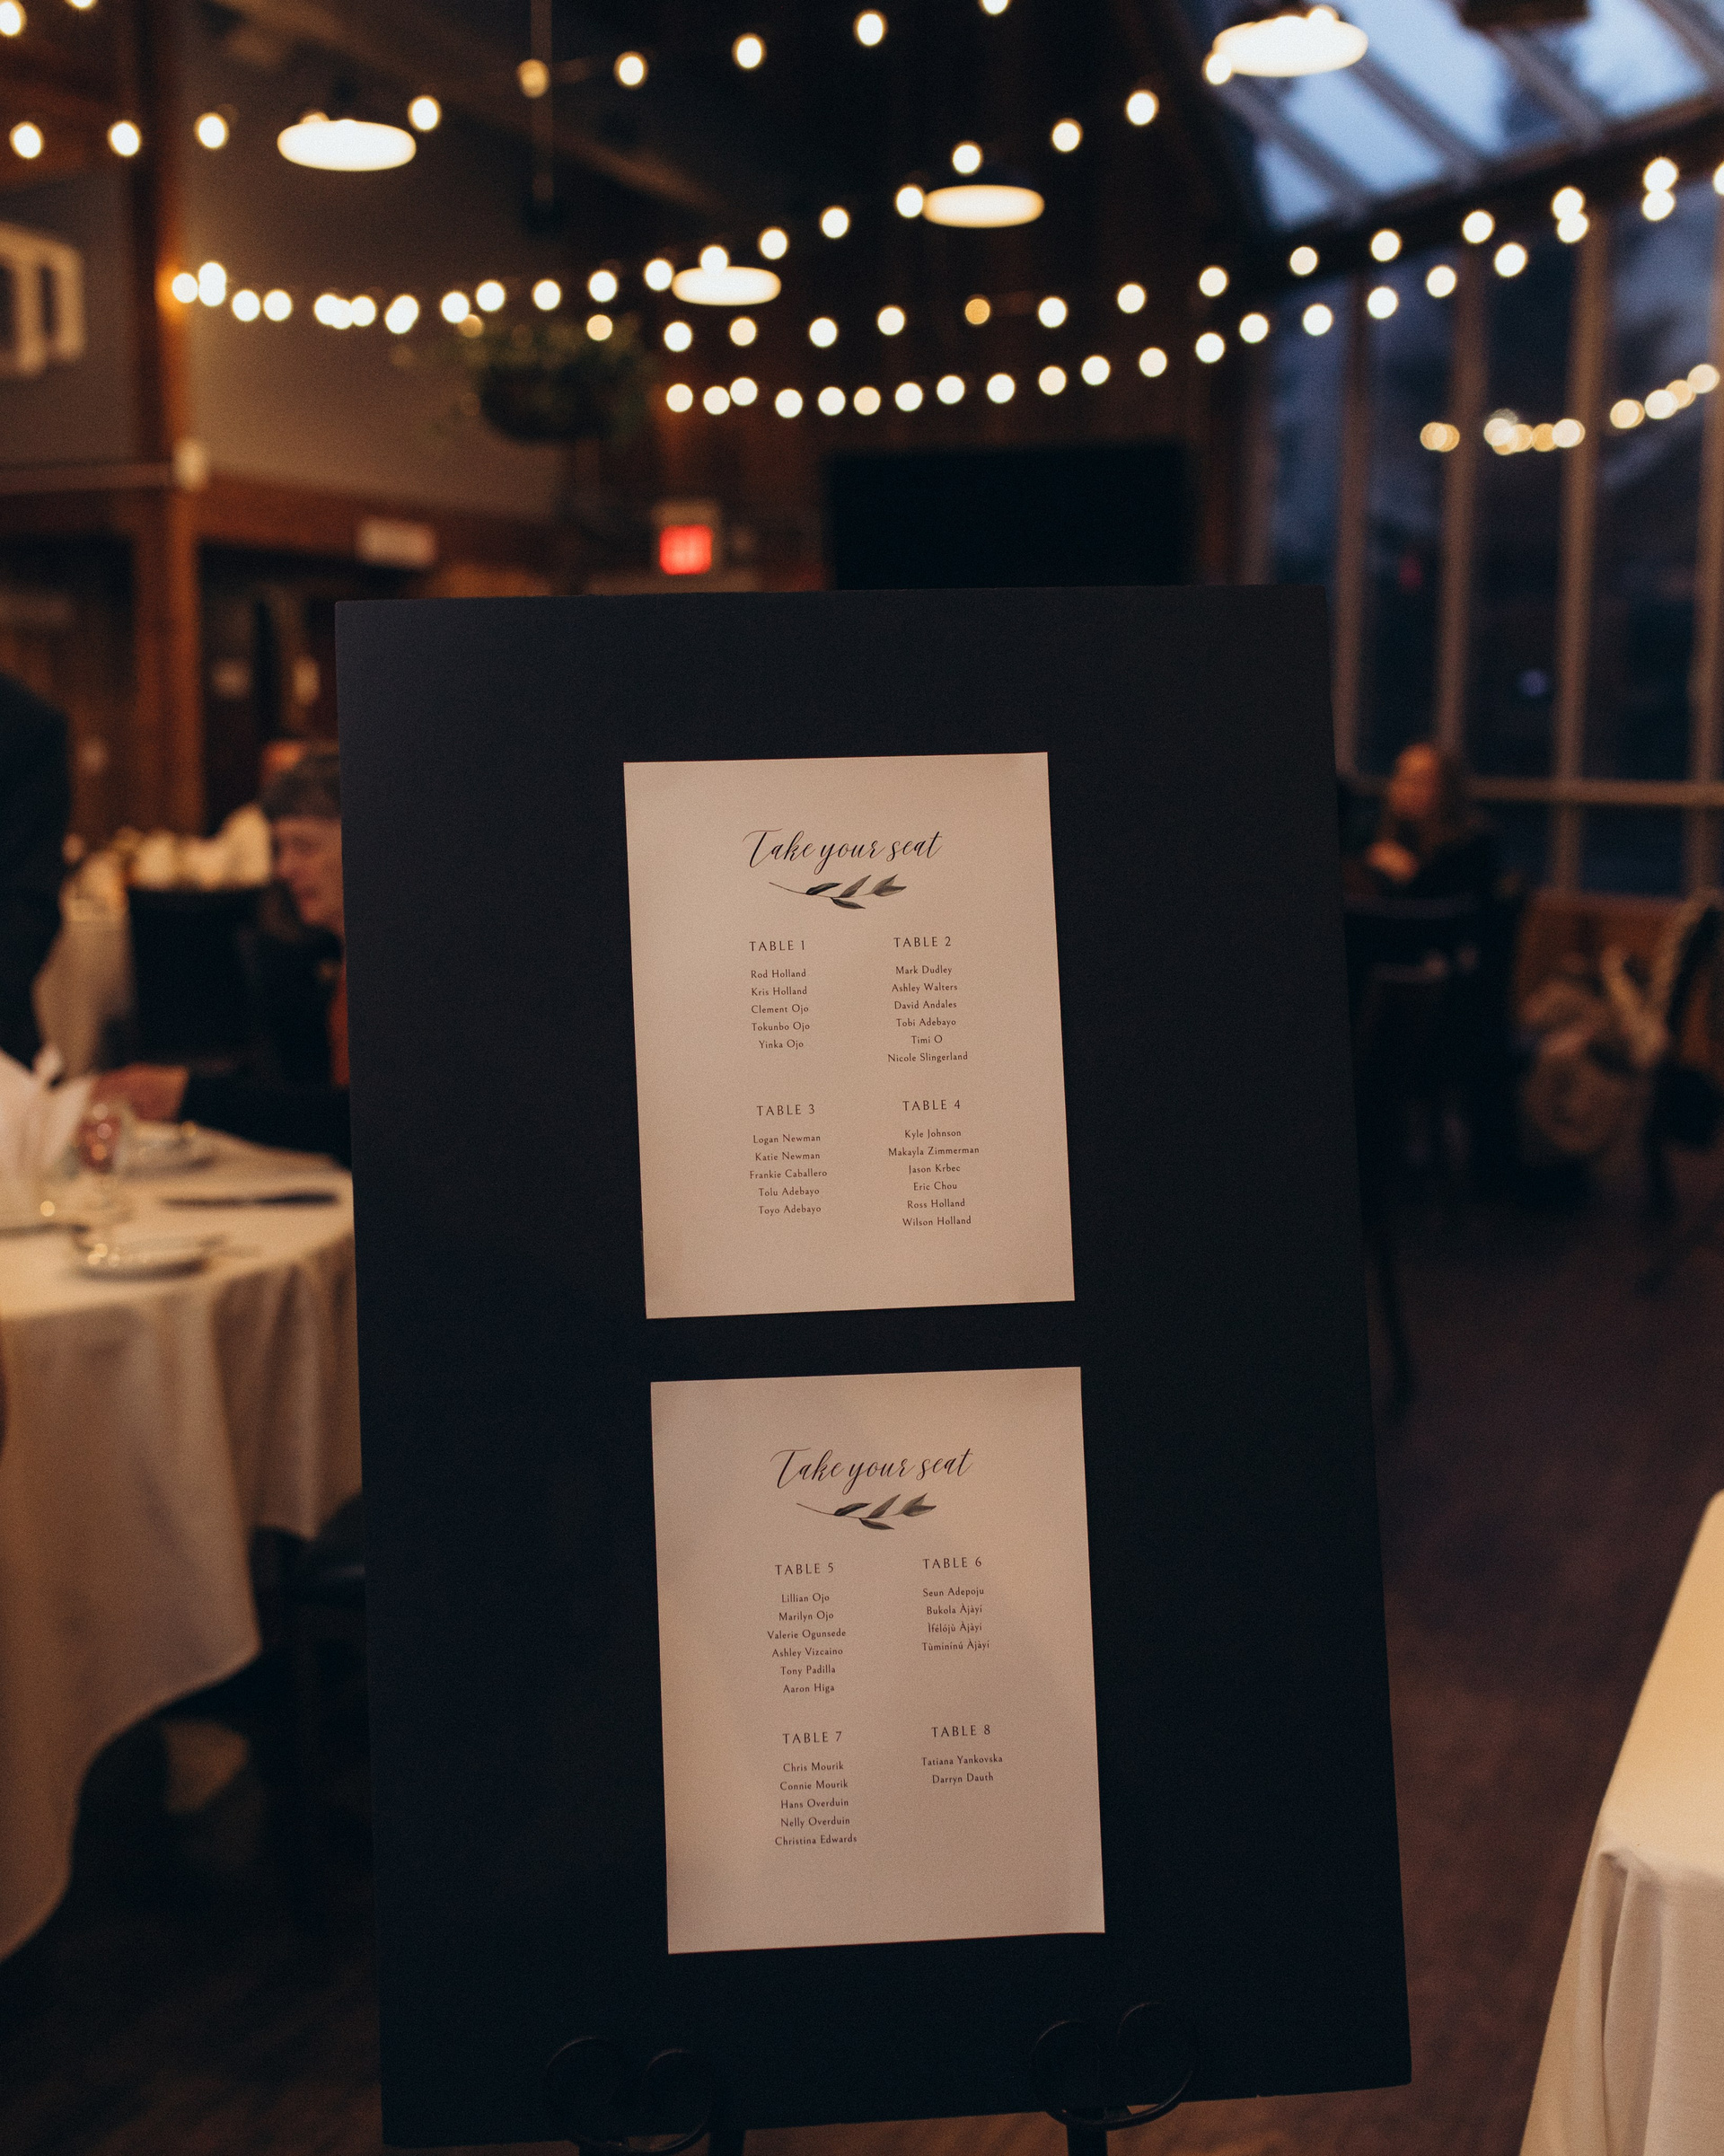 Take your seat
TABLE 1
Rod Holland
Kris Holland
Clement Ojo
Tokunbo Ojo
Yinka Ojo
TABLE 2
Mark Dudley
Ashley Walters
David Andales
Tobi Adebayo
Timi O
Nicole Slingerland
TABLE 3
Logan Newman
Katie Newman
Frankie Caballero
Tolu Adebayo
Toyo Adebayo
TABLE 4
Kyle Johnson
Makayla Zimmerman
Jason Krbec
Eric Chou
Ross Holland
Wilson Holland
Take your seat
TABLE 5
Lillian Ojo
Marilyn Ojo
Valerie Ogunsede
Ashley Vizcaino
Tony Padilla
Aaron Higa
TABLE 6
Seun Adepoju
Bukola Àjàyí
Ìfélójú Àjàyí
Tùmínínú Àjàyí
TABLE 7
Chris Mourik
Connie Mourik
Hans Overduin
Nelly Overduin
Christina Edwards
TABLE 8
Tatiana Yankovska
Darryn Dauth